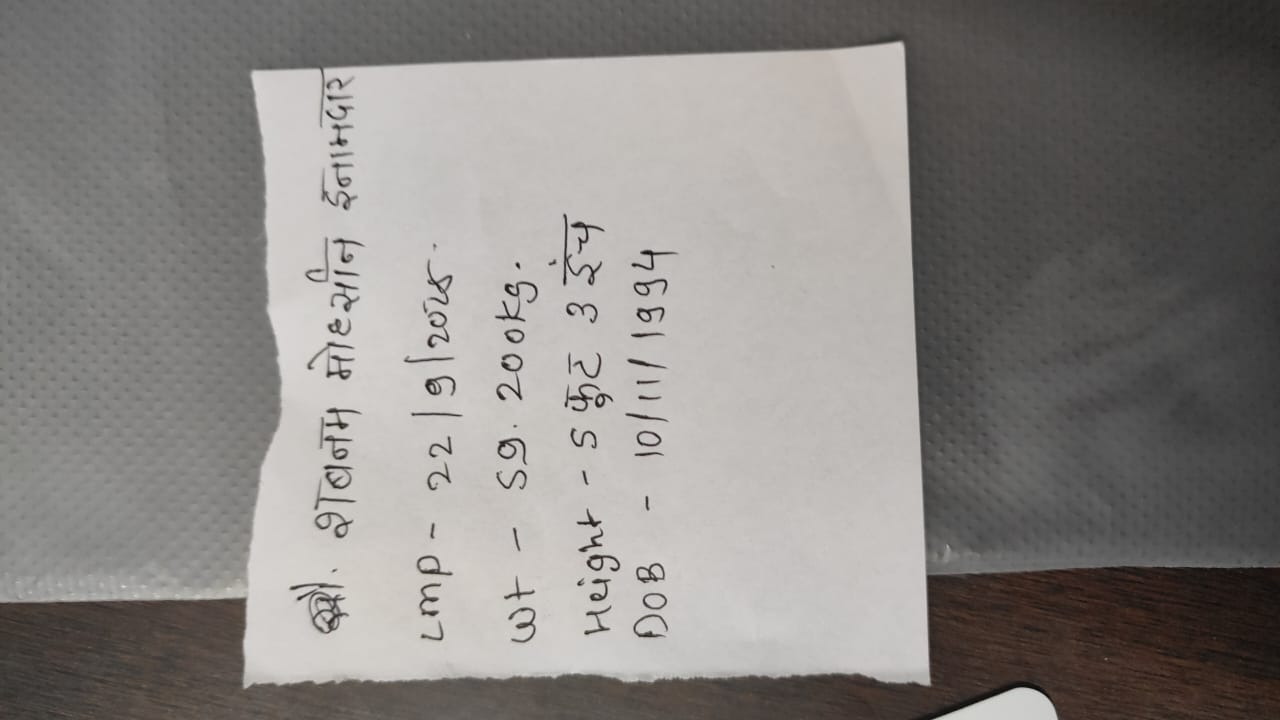 सौ. शबनम मोहसीन ईनामदार
LMP - 22/9/2025.
Wt - 59.200kg.
Height - 5 फुट 3 इंच
DOB - 10/11/1994